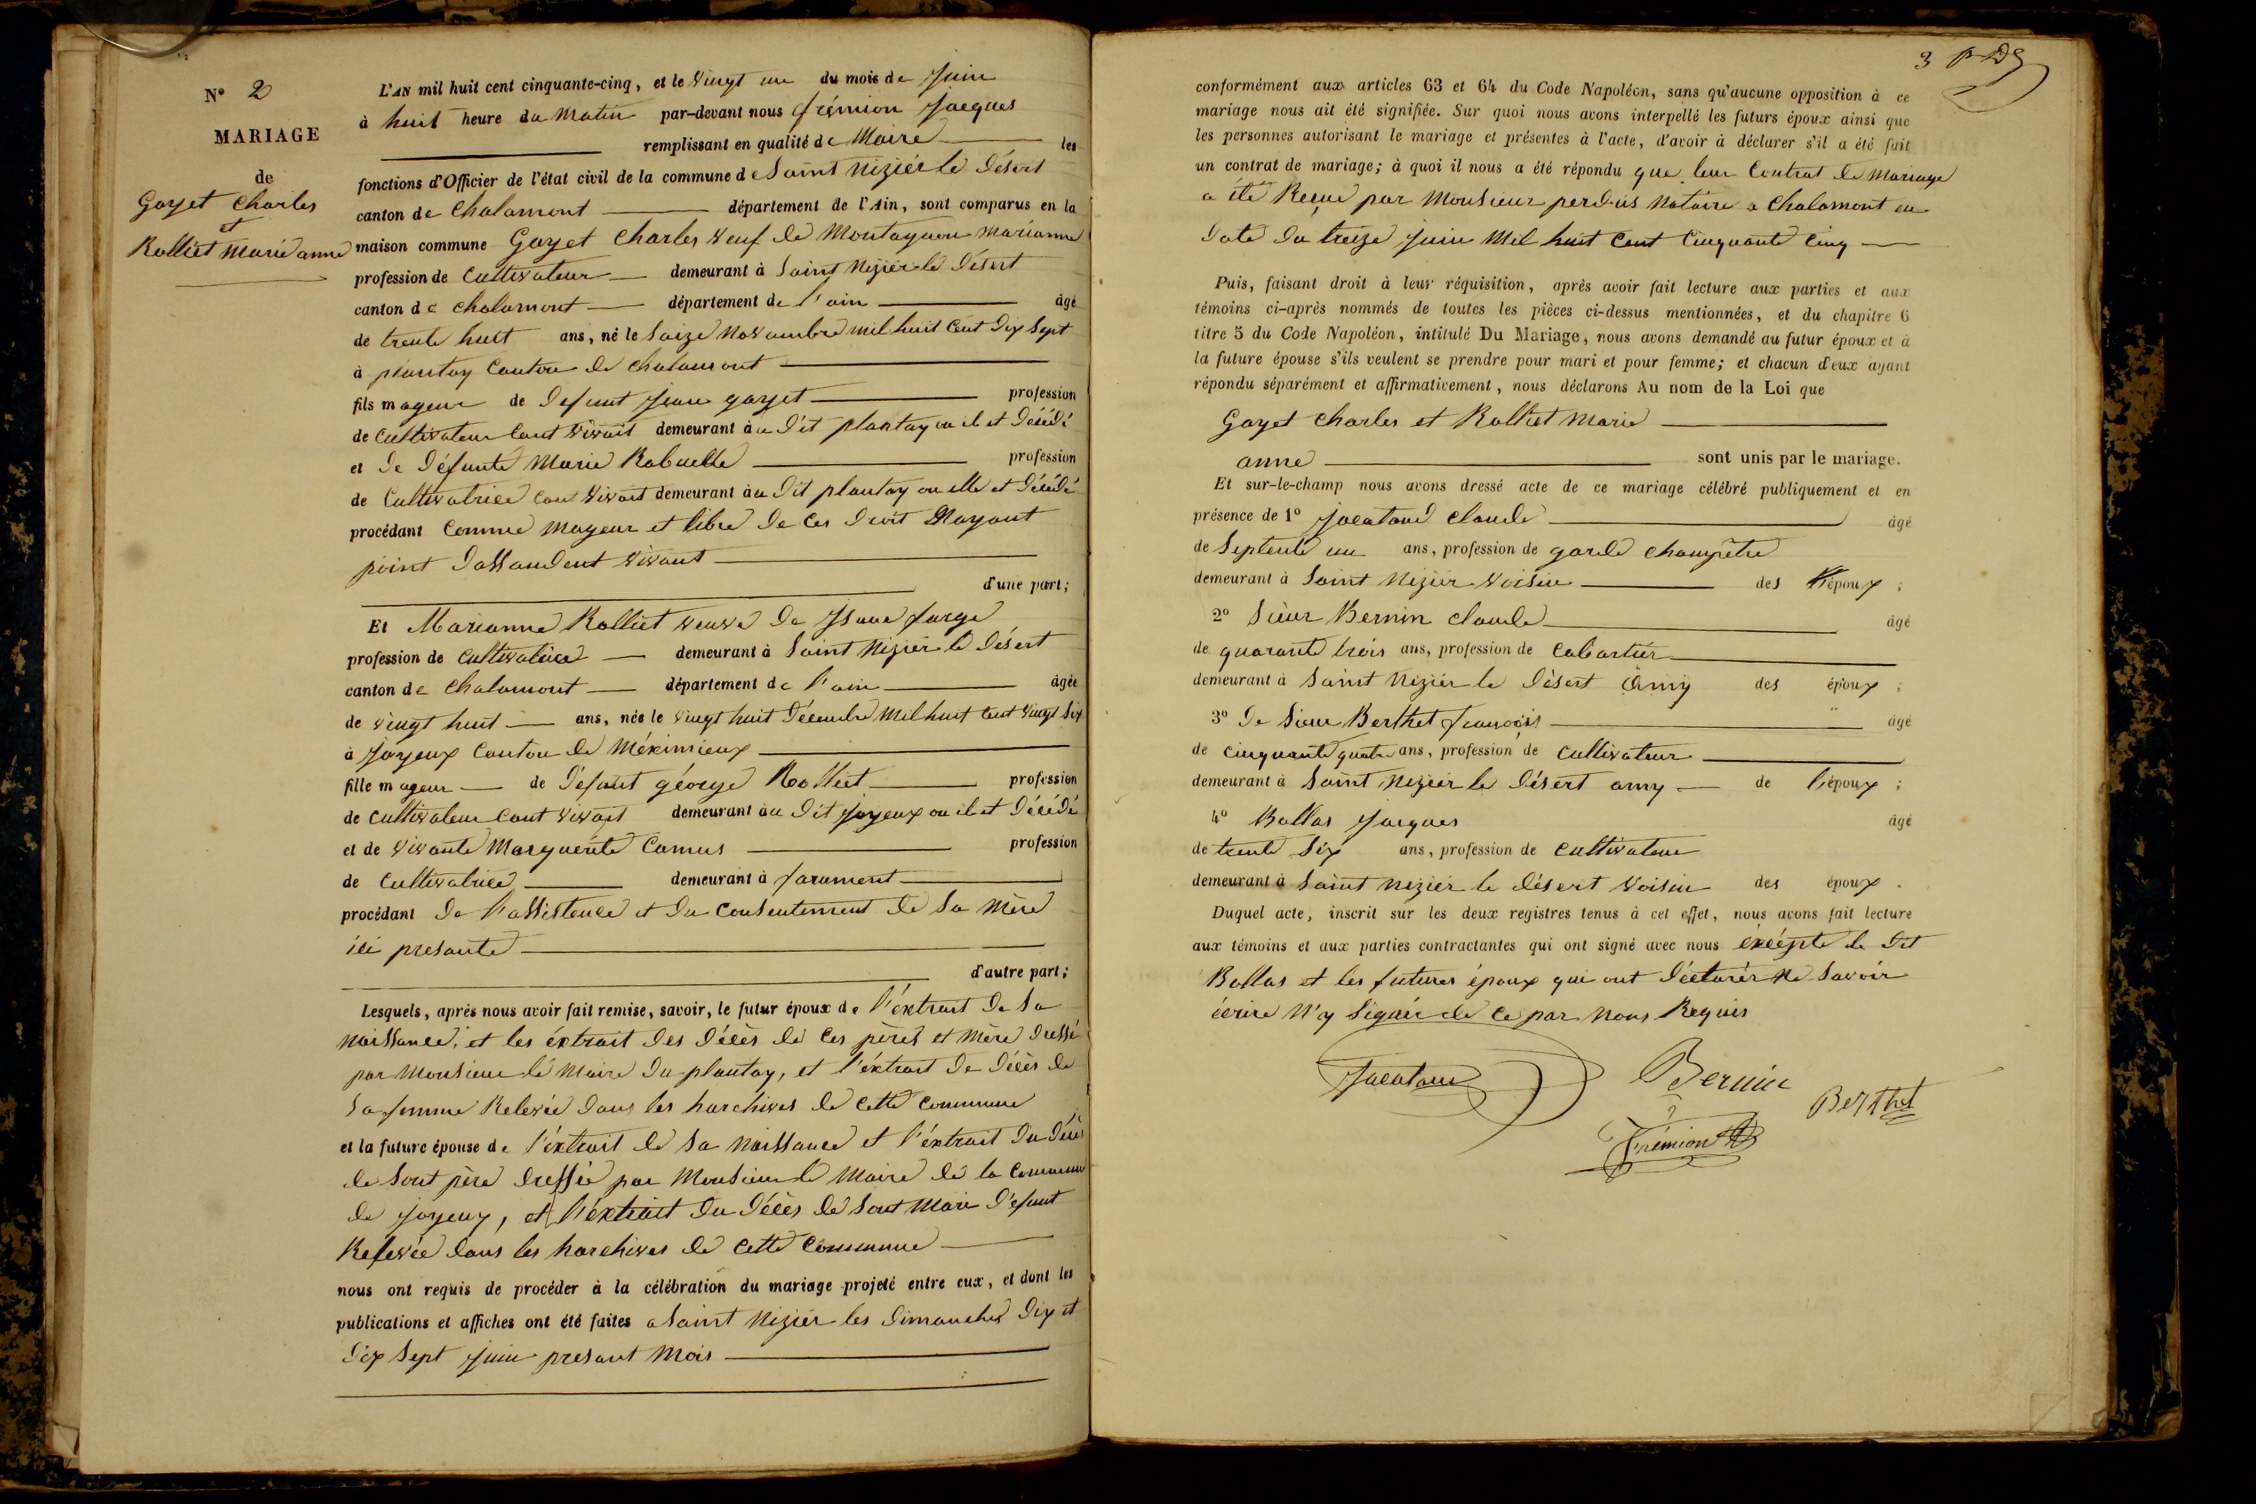 N° 2
MARIAGE
de
Gayet Charles
et
Rolliet Marie anne
L'AN mil huit cent cinquante-cinq, et le vingt un du mois de Juin
à huit heure du Matin par-devant nous frémion Jacques
remplissant en qualité de Maire les
fonctions d'Officier de l'état civil de la commune de Saint Nizier le Désert
canton de Chalamont département de l'Ain, sont comparus en la
maison commune Gayet Charles veuf de Montagnon Marianne
profession de Cultivateur demeurant à Saint Nizier le Désert
canton de Chalamont département de l'ain âgé
de trente huit ans, né le Saize Novambre mil huit Cent Dix Sept
à plantay Canton de Chalamont
fils mageur de Defunt Jean gayet profession
de Cultivateur Cant vivait demeurant à u Dit plantay ou il et Décédé
et de Défunte Marie Rabuelle profession
de Cultivatrice Cant vivait demeurant àu Dit plantay ou elle et Décédé
procédant Comme Mageur et libre De Ces Droit Nayant
point Dassandent vivant
d'une part;
Et Marianne Rolliet veuve De Jsaac farge
profession de Cultivatrice demeurant à Saint Nizier le Désert
canton de Chalamont département de l'ain âgée
de vingt huit ans, née le vingt huit Décembre Mil huit Cent vingt Six
à Joyeux Canton de Méximieux
fille mageur de Défunt géorge Rolliet profession
de Cultivateur Cant vivait demeurant àu Dit Joyeux ou il et Décédé
et de vivante Marguerite Camus profession
de Cultivatrice demeurant à faramant
procédant De l'assistence et Du Consentement de Sa Mère
ici presante
d'autre part;
Lesquels, après nous avoir fait remise, savoir, le futur époux de l'éxtrait De Sa
Naissance, et les éxtrait Des Décès de Ces pères et Mère Dressé
par Monsieur le Maire Du plantay, et l'éxtrait De Décès de
Sa femme Relevée Dans les harchives de Cette Commune
et la future épouse de l'éxtrait de Sa Naissance et l'éxtrait Du Décès
de Sont père Dressée par Monsieur le Maire de la Commune
de Joyeux, et l'éxtrait Du Décès de Sont Mari Défunt
Relevée dans les harchives de Cette Commune
nous ont requis de procéder à la célébration du mariage projeté entre eux, et dont les
publications et affiches ont été faites a Saint Nizier les Dimanches Dix et
Dix Sept Juin presant Mois
3
conformément aux articles 63 et 64 du Code Napoléon, sans qu'aucune opposition à ce
mariage nous ait été signifiée. Sur quoi nous avons interpellé les futurs époux ainsi que
les personnes autorisant le mariage et présentes à l'acte, d'avoir à déclarer s'il a été fait
un contrat de mariage; à quoi il nous a été répondu que leur Contrat de Mariage
a été Reçue par Monsieur perdrix Notaire a Chalamont en
Date Du treize Juin Mil huit Cent Cinquante Cinq
Puis, faisant droit à leur réquisition, après avoir fait lecture aux parties et aux
témoins ci-après nommés de toutes les pièces ci-dessus mentionnées, et du chapitre 6
titre 5 du Code Napoléon, intitulé Du Mariage, nous avons demandé au futur époux et à
la future épouse s'ils veulent se prendre pour mari et pour femme; et chacun d'eux ayant
répondu séparément et affirmativement, nous déclarons Au nom de la Loi que
Gayet Charles et Rolliet Marie
anne sont unis par le mariage.
Et sur-le-champ nous avons dressé acte de ce mariage célébré publiquement et en
présence de 1° Jacatand Claude âgé
de Septente un ans, profession de garde Champêtre
demeurant à Saint Nizier Voisin des époux ;
2° Sieur Bernin Claude âgé
de quarante trois ans, profession de Cabartier
demeurant à Saint Nizier le Désert Amy des époux ;
3° De Sieur Berthet francois âgé
de Cinquante quatre ans, profession de Cultivateur
demeurant à Saint Nizier le Désert amy de l'époux ;
4° Ballas Jacques âgé
de trente Six ans, profession de Cultivateur
demeurant à Saint Nizier le Désert Voisin des époux .
Duquel acte, inscrit sur les deux registres tenus à cet effet, nous avons fait lecture
aux témoins et aux parties contractantes qui ont signé avec nous éxcépté le Dit
Ballas et les futures époux qui ont Déclarér Ne Savoir
écrire N'y Signér de Ce par Nous Requis
Jacatand
Bernin
Berthet
frémion